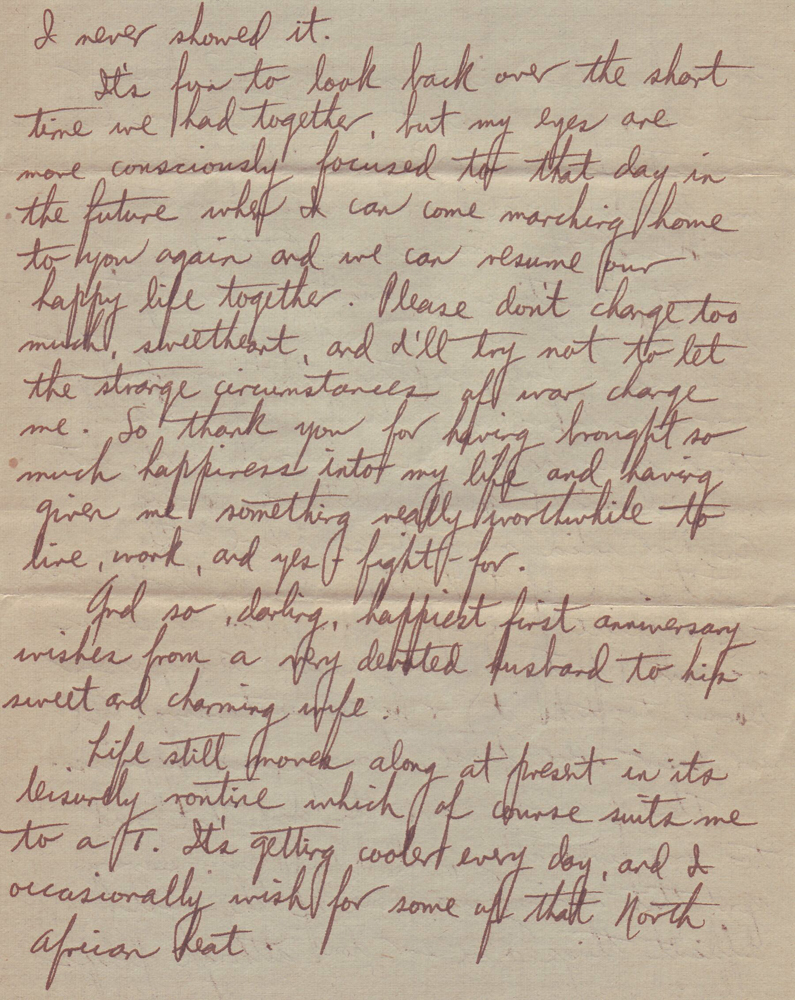 I never showed it.
It's fun to look back over the short
time we had together, but my eyes are
more consciously focused to that day in
the future when I can come marching home
to you again and we can resume our
happy life together. Please don't change too
much, sweetheart, and I'll try not to let
the strange circumstances of war change
me. So thank you for having brought so
much happiness into my life and having
given me something really worthwhile to
live, work, and yes - fight - for.
And so, darling, happiest first anniversary
wishes from a very devoted husband to his
sweet and charming wife.
Life still moves along at present in its
leisurely routine which of course suits me
to a T. It's getting cooler every day, and I
occasionally wish for some of that North
African heat.